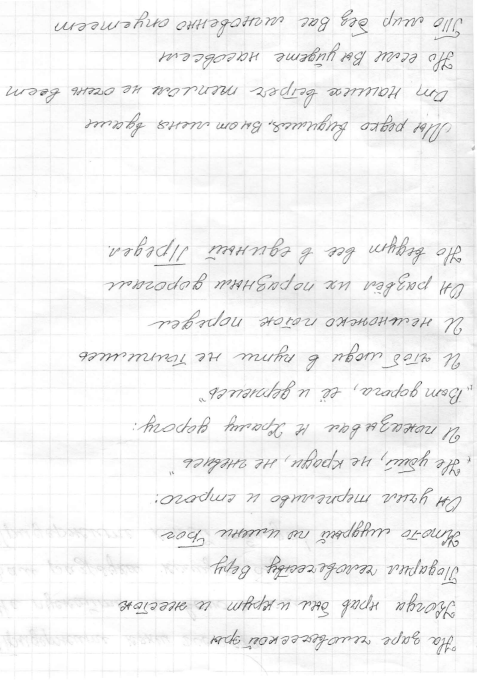 На заре человеческой эры
Когда нрав был и крут и жесток
Подарил человечеству веру
Кто-то мудрый по имени Бог
Он учил терпеливо и строго:
"Не убий, не кради, не гневись"
И показывал к Храму дорогу:
"Вот дорога, её и держись"
И чтоб люди в пути не толпились
И немножко поток поредел
Он развёл их по разным дорогам
Но ведут все в единый Предел.
Мы редко видимся, Вы от меня вдали
От наших встреч теплом не очень веет
Но если Вы уйдете насовсем
То мир без Вас мгновенно опустеет